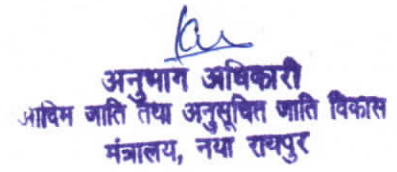 अनुभाग अधिकारी
आदिम जाति तथा अनुसूचित जाति विकास
मंत्रालय, नया रायपुर